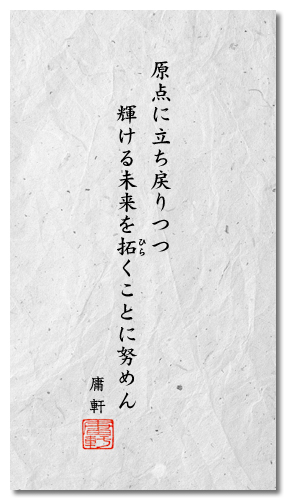 原点に立ち戻りつつ
輝ける未来を拓くことに努めん
ひら
庸軒
庸軒